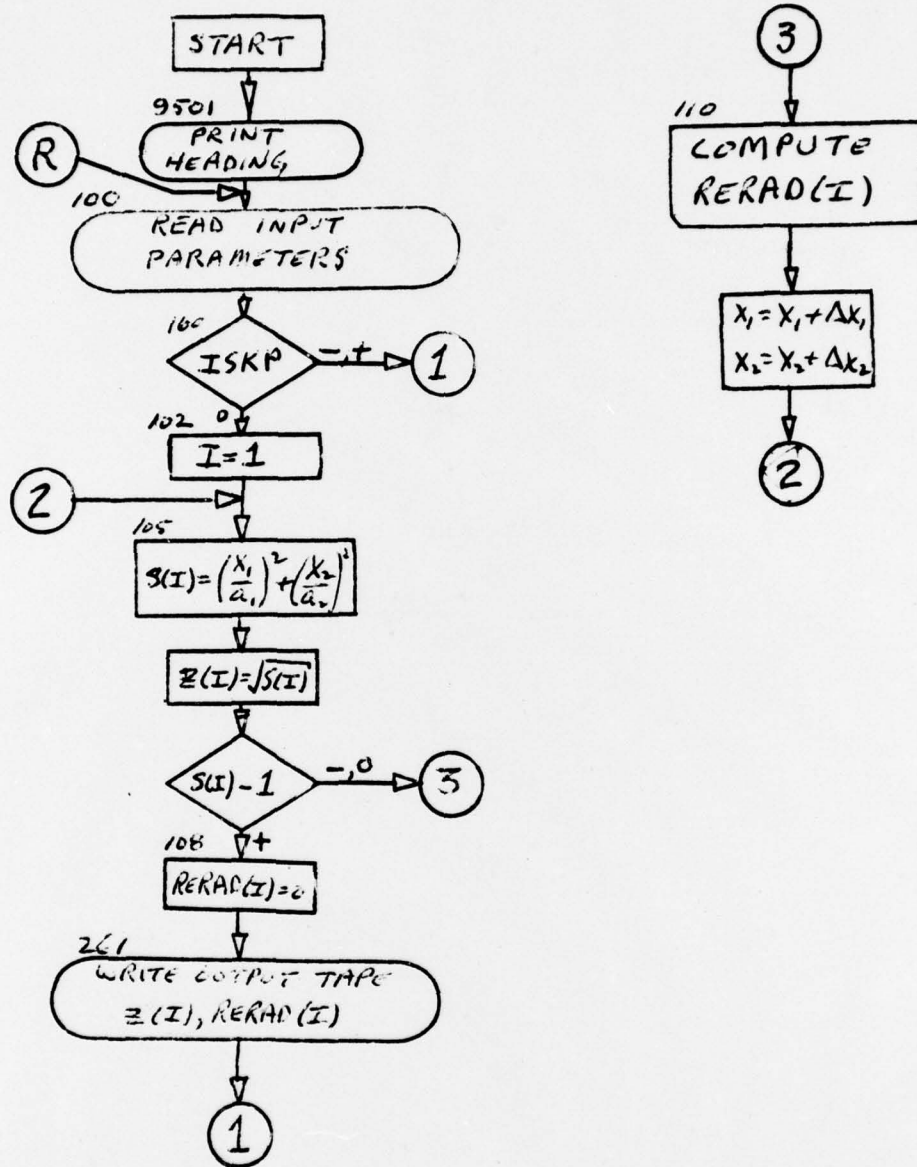 START
9501
PRINT
HEADING
R
100
READ INPUT
PARAMETERS
100
ISKP
-,+
1
0
102
I=1
2
105
S(I)=(X₁/a₁)²+(X₂/a₂)²
Z(I)=√S(I)
S(I)-1
-,0
3
+
108
RERAD(I)=0
261
WRITE OUTPUT TAPE
Z(I), RERAD(I)
1
3
110
COMPUTE
RERAD(I)
X₁=X₁+ΔX₁
X₂=X₂+ΔX₂
2